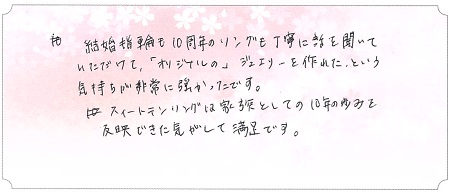 結婚指輪も10周年のリングも丁寧に話を聞いて
いただけて、「オリジナルの」ジュエリーを作れた、という
気持ちが非常に強かったです。
スイートテンリングは家族としての10年のゆみを
反映できた気がして満足です。